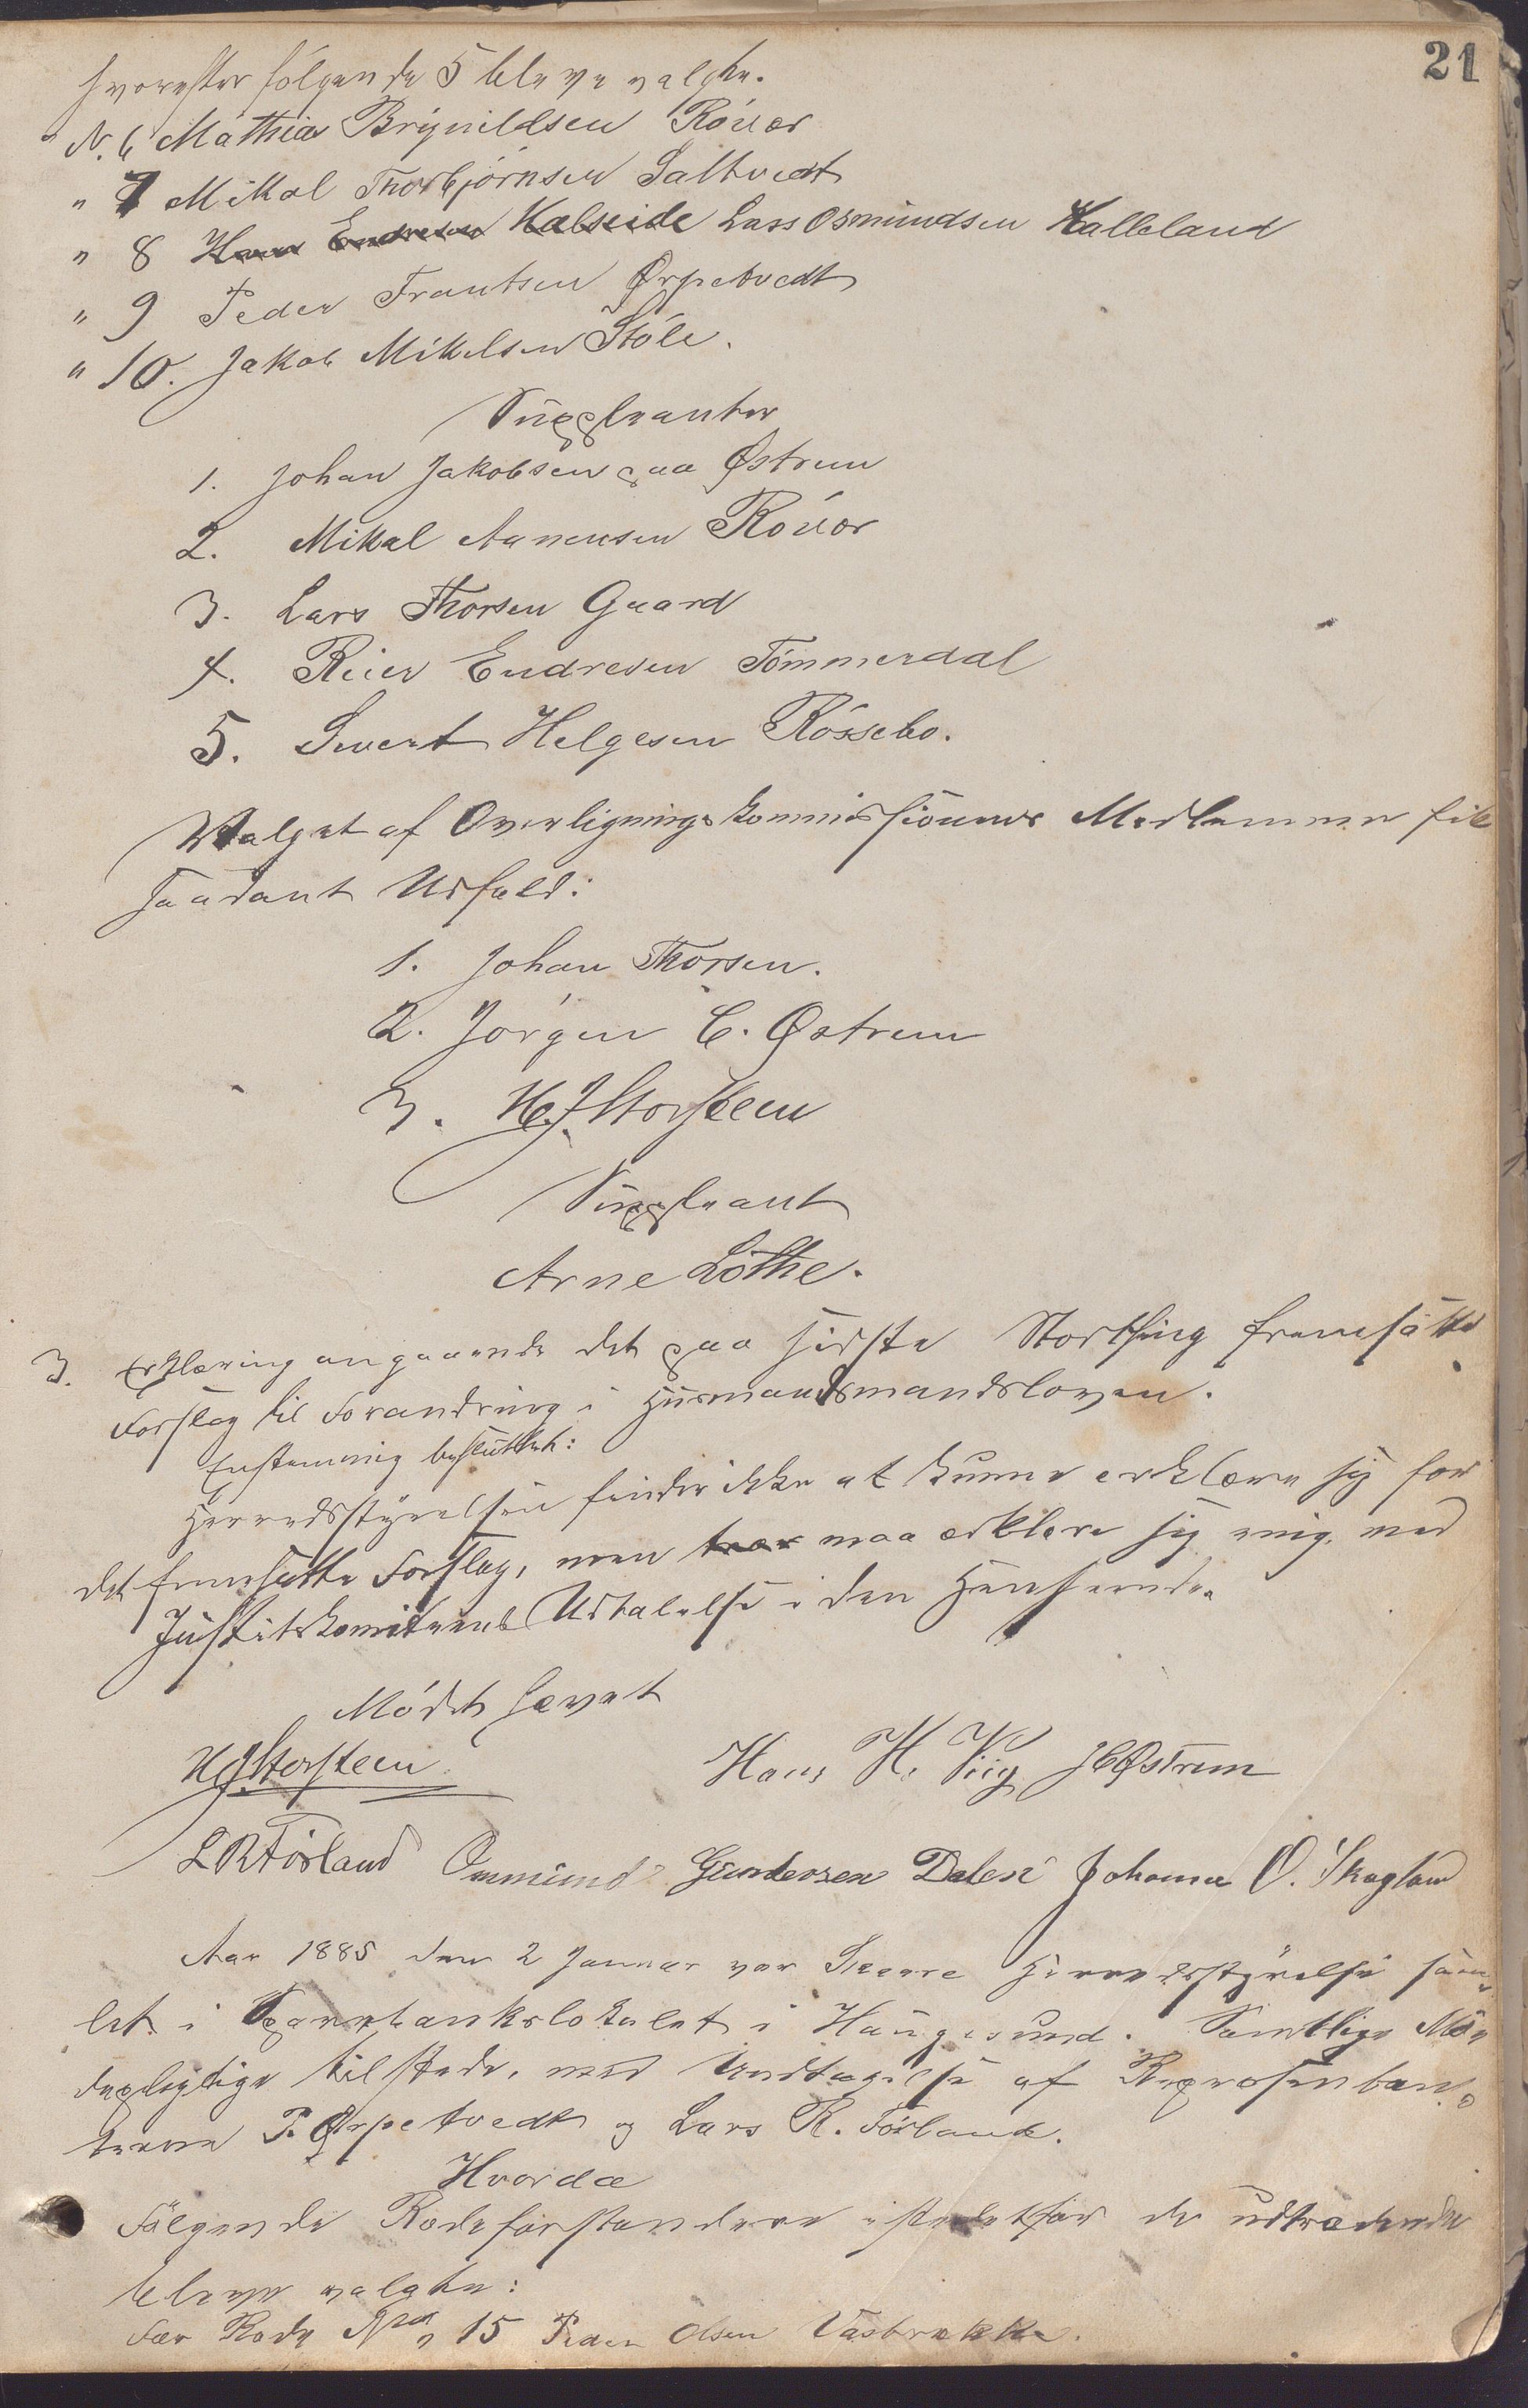 21
hvorefter følgende 5 bleve valgte.
" N. 6 Mathias Brynildsen Röver
" 7 Mikal Thorbjörnsen Saltvedt
" 8 Hans Endresen Kalseide Lars Osmundsen Kalleland
" 9 Peder Frantsen Ørpetvedt
" 10. Jakob Mikelsen Støle.
Suppleanter
1. Johan Jakobsen paa Østrem
2. Mikal Aanensen Rövær
3. Lars Thorsen Gaard
4. Reier Endresen Tömmerdal
5. Sivert Helgesen Røssebo.
Valget af Overligningskommissionens Medlemmer fik
saadant Udfald:
1. Johan Thorsen.
2. Jørgen C. Østrem
3. H. J. Storsteen
Suppleant
Arne Löthe.
3. Erklæring angaaende det paa sidste Storthing fremsatte
Forslag til Forandring i Husmandsmandsloven.
Enstemmig besluttet:
Herredsstyrelsen finder ikke at kunne erklære sig for
det fremsatte Forslag, men maa erklære sig enig med
Justitskomiteens Udtalelse i den Henseende.
Mödet hævet
H J Storsteen Hans H. Viig J C Østrem
L R Førland Ommund Gundersen Dalen Johannes O. Skogland
Aar 1885 den 2 Januar var Skaare Herredsstyrelse sam-
let i Sparebankslokalet i Haugesund. Samtlige Mö-
depligtige tilstede, med Undtagelse af Repræsentan-
terne P. Ørpetvedt og Lars R. Førland.
Hvorda
Følgende Rodeforstandere istedetfor de udtrædende
bleve valgte:
For Rode No 15 Peder Olsen Vasbrekke.